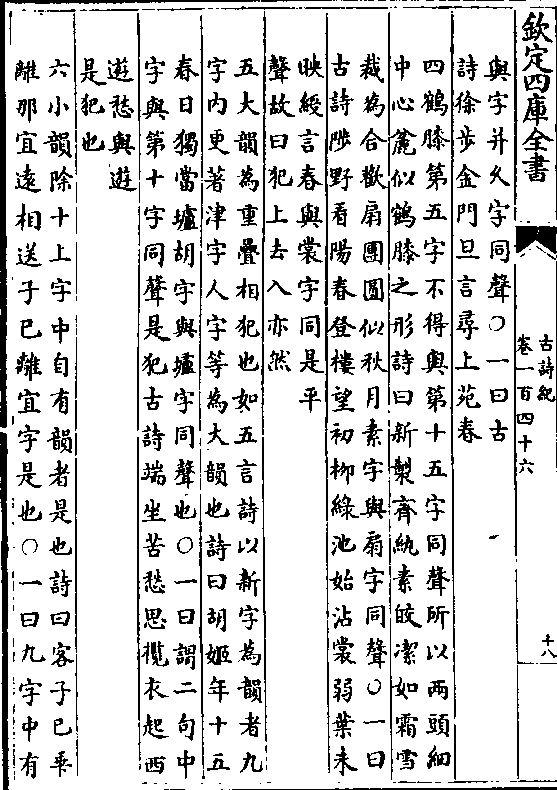 欽定四庫全書
古詩紀
卷一百四十六
十八
與字并久字同聲○一曰古
詩徐步金門旦言尋上苑春
四鶴膝第五字不得與第十五字同聲所以兩頭細
中心麄似鶴膝之形詩曰新製齊紈素皎潔如霜雪
裁為合歡扇團圓似秋月素字與扇字同聲○一曰
古詩陟野看陽春登樓望初柳綠池始沾裳弱葉未
映綬言春與裳字同是平
聲故曰犯上去入亦然
五大韻為重疊相犯也如五言詩以新字為韻者九
字內更著津字人字等為大韻也詩曰胡姬年十五
春日獨當壚胡字與壚字同聲也○一曰謂二句中
字與第十字同聲是犯古詩端坐苦愁思攬衣起西
遊愁與遊
是犯也
六小韻除十上字中自有韻者是也詩曰客子已乖
離那宜遠相送子已離宜字是也○一曰九字中有